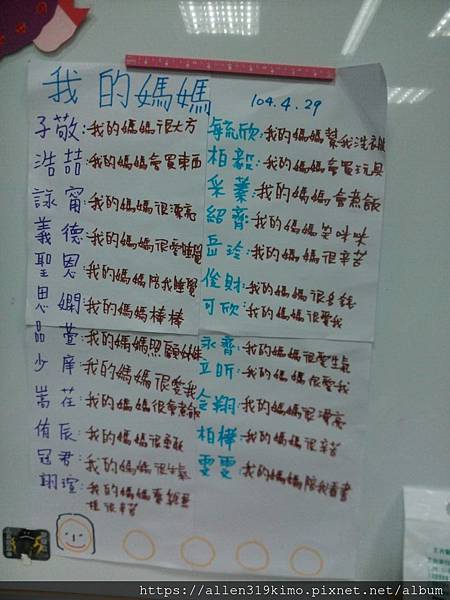 我的媽媽
104.4.29
子敬:我的媽媽很大方
浩喆:我的媽媽會買東西
詠甯:我的媽媽很漂亮
義德:我的媽媽很愛睡覺
聖恩:我的媽媽陪我睡覺
思嫻:我的媽媽棒棒
品萱:我的媽媽照顧妹妹
少庠:我的媽媽很愛我
嵩荏:我的媽媽很會煮飯
侑辰:我的媽媽很
冠君:我的媽媽很生氣
翊瑄:我的媽媽
很辛苦
毓欣:我的媽媽幫我洗衣服
柏毅:我的媽媽會買玩具
采蓁:我的媽媽會煮飯
紹齊:我的媽媽笑咪咪
岳玲:我的媽媽很辛苦
俊財:我的媽媽很多錢
可欣:我的媽媽很愛我
永齊:我的媽媽很愛生氣
立昕:我的媽媽很愛我
翔:我的媽媽很漂亮
柏樺:我的媽媽很辛苦
雯雯:我的媽媽陪我看書
https://allen319kimo.pixnet.net/album